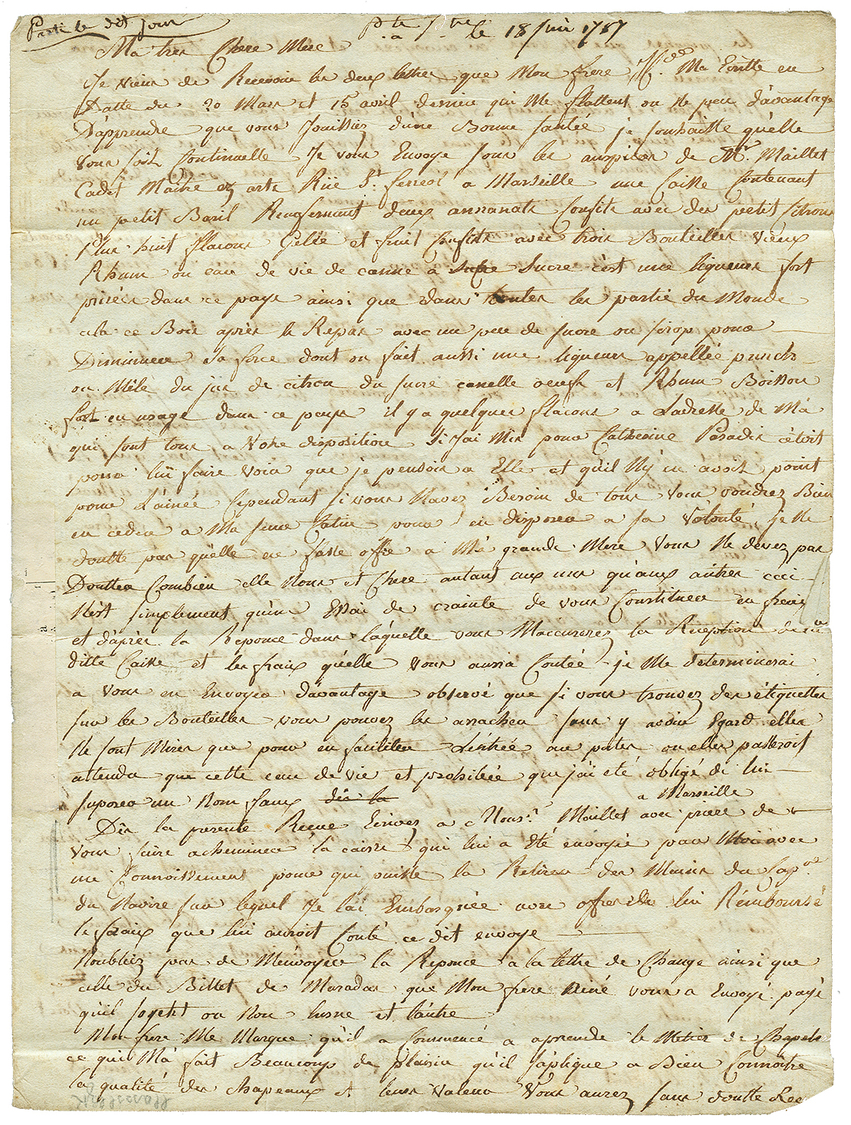 Parti le dit jour
Pte à Ptre le 18 Juin 1787
Ma tres Chere Mere
Je viens de Recevoir les deux lettres que Mon frere Ma Ecritte en
Datte du 20 Mars et 15 avril dernier qui Me flattent on ne peu davantage
D'apprendre que vous Jouissiez d'une Bonne santée je souhaitte qu'elle
vous soit Continuelle Je vous Envoye sous les auspices de Mr. Maillet
Cadet Maitre es arts Rue St. ferreol a Marseille une Caisse Contenant
un petit Baril Renfermant deux annanats Confits avec des petit Citrons
Plus huit flacons Gelée et fruit Confits avec trois Bouteilles vieux
Rhum ou eau de vie de canne à Sucre c'est une liqueur fort
prisée dans ce pays ainsi que dans toutes les partie du Monde
cela ce Boit après le Repas avec un peu de sucre ou sirop pour
Diminuer sa force dont on fait aussi une liqueur appellée punch
ou Mêle du jus de citron du sucre canelle oeufs et Rhum Boisson
fort en usage dans ce pays il y a quelques flacons a Ladresse de Ma
qui sont tous a Votre disposition Si J'ai Mis pour Catherine Paradis c'étoit
pour lui faire voir que je pensois a Elle et qu'il N'y en avoit point
pour L'ainée Cependant si vous Navez Besoin de tous vous voudrez Bien
en ceder a Ma pour en disposer a sa Volonté je Ne
doutte pas quelle ne fasse offre a Ma grande Mere Vous Ne devez pas
Doutter Combien elle Nous et Chere autant aux uns qu'aux autres ceci
N'est simplement qu'un Essai de crainte de vous Constituer en fraix
et d'après la Reponce dans laquelle vous Maccuserez la Reception de la
ditte Caisse et les fraix qu'elle vous aura Coutée je Me determinerai
a vous en Envoyer davantage observé que si vous trouvez des étiquettes
sur les Bouteilles vous pouvez les arracher sans y avoir Egard elles
Ne sont Mises que pour en faciliter L'éntrée au ou elles passeront
attendu que cette eau de vie et prohibée que j'ai été obligé de lui
suposer un Nom faux des la
a Marseille
Dès la presente Recue Ecrivez a Monsr. Maillet avec priere de
vous faire acheminer la caisse qui lui a Eté envoyée par Moi avec
un Connoissement pour qui puisse la Retirer des Mains du Capne
du Navire sur lequel Je l'ai Embarquée avec offre de lui Rémboursé
le fraix que lui auroit Couté ce dit envoye
Noubliez pas de Menvoyer la Reponce a la lettre de Change ainsi que
celle du Billet de que Mon frere Réné vous a Envoyé payé
qu'il soyent ou Non L'une et L'autre
Mon frere Me Marque qu'il a Commencé a aprendre le Metier de
ce qui Ma fait Beaucoup de plaisir qu'il s'aplique a Bien Connoitre
la qualité des Chapeaux et leurs Valeur Vous aurez sans doutte Rec